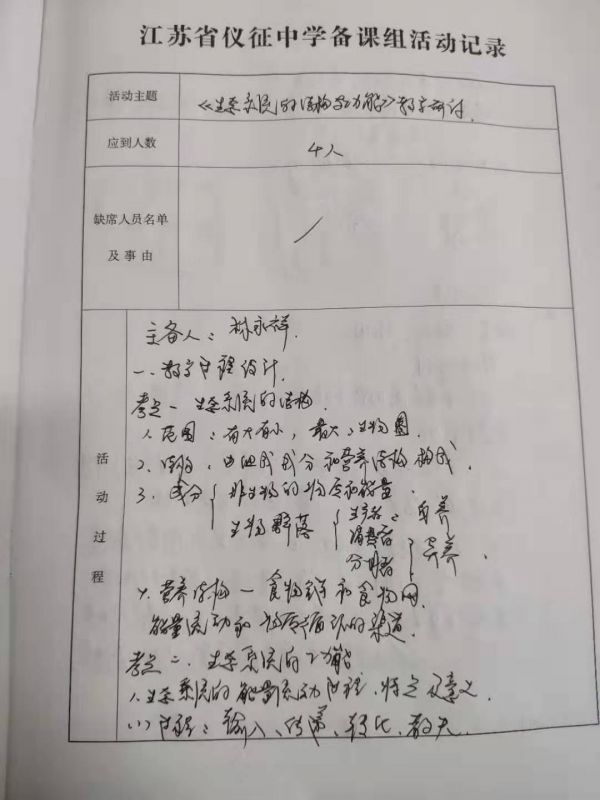 江苏省仪征中学备课组活动记录
活动主题
《生态系统的结构与功能》教学研讨.
应到人数
4人
缺席人员名单
及事由
/
活动过程
主备人：林永祥.
一、教学过程设计.
考点一 生态系统的结构.
1、范围：有大有小，最大：生物圈.
2、结构：由组成成分和营养结构构成.
3、成分 非生物的物质和能量
生物群落 生产者：自养
消费者
分解者 异养.
4、营养结构—食物链和食物网
能量流动和物质循环的渠道.
考点二、生态系统的功能
1、生态系统的能量流动过程、特点及意义
(1)过程：输入、传递、转化、散失